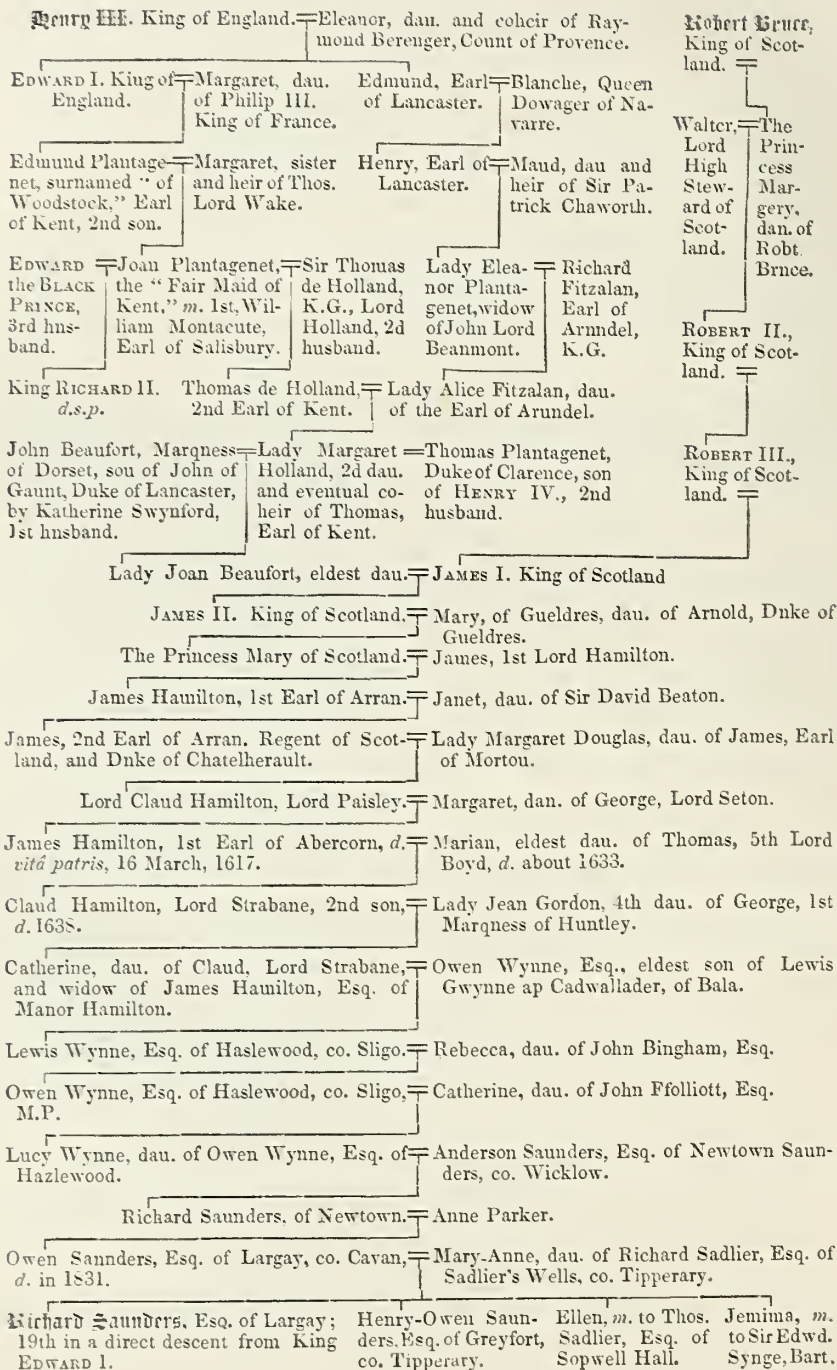 Henry III. King of England. Eleanor, dau. and coheir of Ray-
mond Berenger, Count of Provence.
Robert Bruce,
King of Scot-
land.
EDWARD I. King of
England.
Margaret, dau.
of Philip III.
King of France.
Edmund, Earl
of Lancaster.
Blanche, Queen
Dowager of Na-
varre.
Walter,
Lord
High
Stew-
ard of
Scot-
land.
The
Prin-
cess
Mar-
gery,
dau. of
Robt.
Bruce.
Edmund Plantage-
net, surnamed "of
Woodstock," Earl
of Kent, 2nd son.
Margaret, sister
and heir of Thos.
Lord Wake.
Henry, Earl of
Lancaster.
Maud, dau and
heir of Sir Pa-
trick Chaworth.
EDWARD
the BLACK
PRINCE,
3rd hus-
band.
Joan Plantagenet,
the "Fair Maid of
Kent," m. 1st, Wil-
liam Montacute,
Earl of Salisbury.
Sir Thomas
de Holland,
K.G., Lord
Holland, 2d
husband.
Lady Elea-
nor Planta-
genet, widow
of John Lord
Beaumont.
Richard
Fitzalan,
Earl of
Arundel,
K.G.
ROBERT II.,
King of Scot-
land.
King RICHARD II.
d.s.p.
Thomas de Holland,
2nd Earl of Kent.
Lady Alice Fitzalan, dau.
of the Earl of Arundel.
John Beaufort, Marquess
of Dorset, son of John of
Gaunt, Duke of Lancaster,
by Katherine Swynford,
1st husband.
Lady Margaret
Holland, 2d dau.
and eventual co-
heir of Thomas,
Earl of Kent.
Thomas Plantagenet,
Duke of Clarence, son
of HENRY IV., 2nd
husband.
ROBERT III.,
King of Scot-
land.
Lady Joan Beaufort, eldest dau. JAMES I. King of Scotland
JAMES II. King of Scotland. Mary, of Gueldres, dau. of Arnold, Duke of
Gueldres.
The Princess Mary of Scotland. James, 1st Lord Hamilton.
James Hamilton, 1st Earl of Arran. Janet, dau. of Sir David Beaton.
James, 2nd Earl of Arran. Regent of Scot-
land, and Duke of Chatelherault.
Lady Margaret Douglas, dau. of James, Earl
of Morton.
Lord Claud Hamilton, Lord Paisley. Margaret, dau. of George, Lord Seton.
James Hamilton, 1st Earl of Abercorn, d.
vitâ patris, 16 March, 1617.
Marian, eldest dau. of Thomas, 5th Lord
Boyd, d. about 1633.
Claud Hamilton, Lord Strabane, 2nd son,
d. 1638.
Lady Jean Gordon, 4th dau. of George, 1st
Marquess of Huntley.
Catherine, dau. of Claud, Lord Strabane,
and widow of James Hamilton, Esq. of
Manor Hamilton.
Owen Wynne, Esq., eldest son of Lewis
Gwynne ap Cadwallader, of Bala.
Lewis Wynne, Esq. of Haslewood, co. Sligo. Rebecca, dau. of John Bingham, Esq.
Owen Wynne, Esq. of Haslewood, co. Sligo,
M.P.
Catherine, dau. of John Ffolliott, Esq.
Lucy Wynne, dau. of Owen Wynne, Esq. of
Hazlewood.
Anderson Saunders, Esq. of Newtown Saun-
ders, co. Wicklow.
Richard Saunders, of Newtown. Anne Parker.
Owen Saunders, Esq. of Largay, co. Cavan,
d. in 1831.
Mary-Anne, dau. of Richard Sadlier, Esq. of
Sadlier's Wells, co. Tipperary.
Richard Saunders, Esq. of Largay;
19th in a direct descent from King
EDWARD I.
Henry-Owen Saun-
ders, Esq. of Greyfort,
co. Tipperary.
Ellen, m. to Thos.
Sadlier, Esq. of
Sopwell Hall.
Jemima, m.
to Sir Edwd.
Synge, Bart.